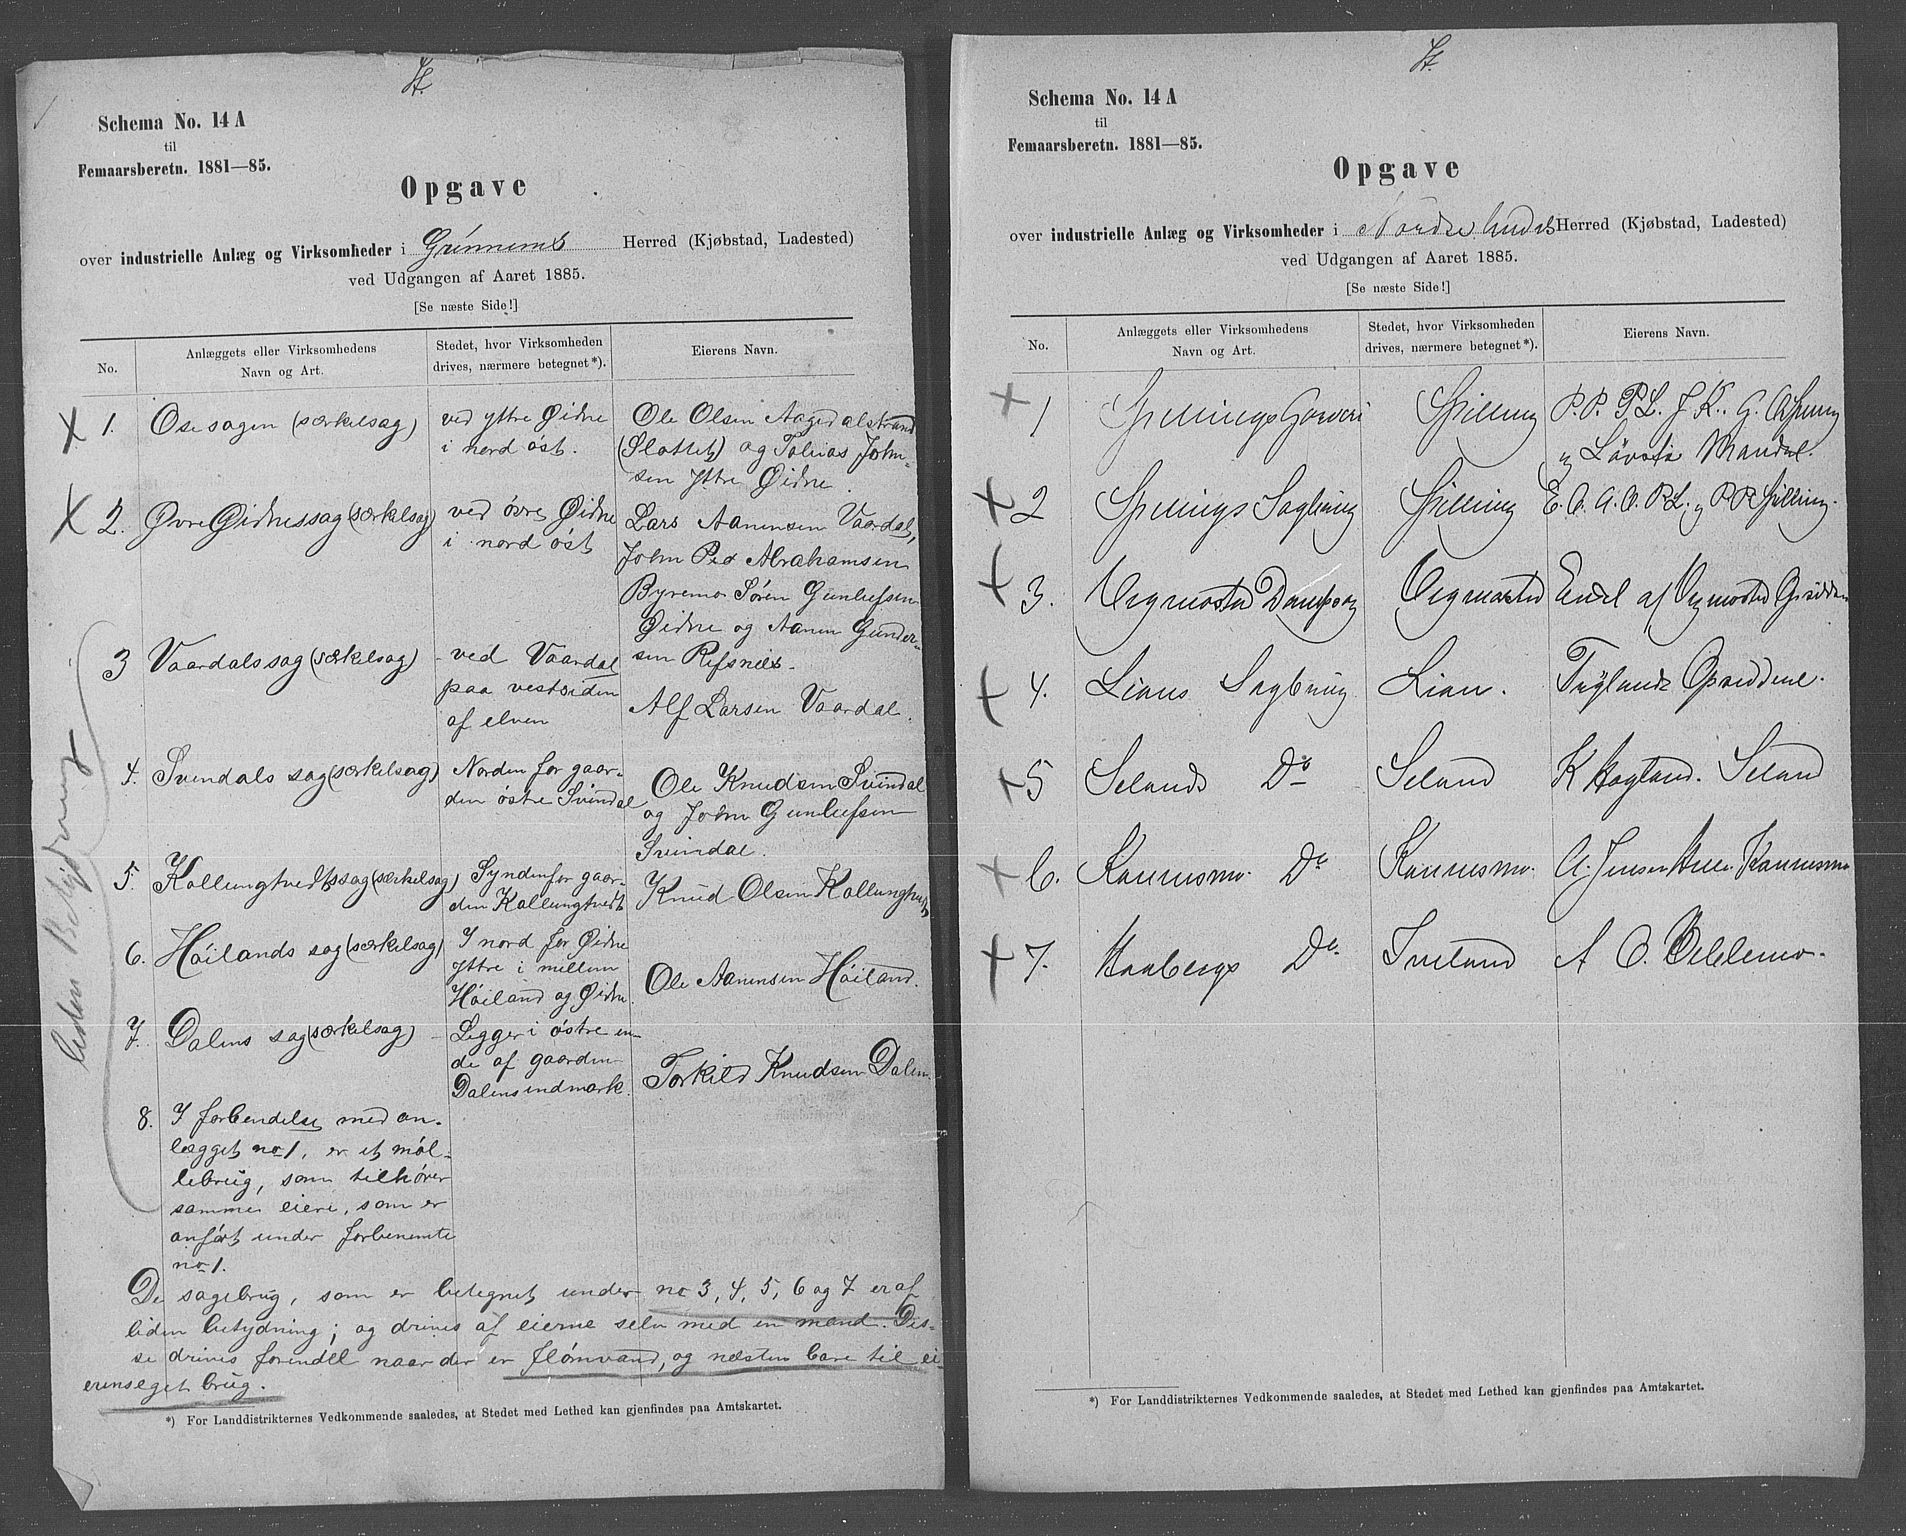 Schema No. 14 A
til
Femaarsberetn. 1881—85.
Opgave
over industrielle Anlæg og Virksomheder i Grinnems Herred (Kjøbstad, Ladested)
ved Udgangen af Aaret 1885.
[Se næste Side!]
No.
Anlæggets eller Virksomhedens
Navn og Art.
Stedet, hvor Virksomheden
drives, nærmere betegnet*).
Eierens Navn.
1. Ose sagen (særkelsag)
ved yttre Øidne
i nord øst.
Ole Olsen Aagedalstrand
(Slottet) og Tobias John-
sen Yttre Øidne.
2. Øvre Øidnessag (særkelsag)
ved övre Øidne
i nord öst
Lars Aanensen Vaardal,
John Ped Abrahamsen
Byremo Sören Gunlufsen
Øidne og Aanen Gunder-
sen Refsnes.
3 Vaardalssag (særkelsag)
ved Vaardal
paa vestsiden
af elven
Alf Larsen Vaardal.
4. Svendals sag (særkelsag)
Norden for gaar-
den östre Svindal
Ole Knudsen Svindal
og John Gunlufsen
Svindal.
5. Kollungtvedtssag (særkelsag)
Syndenfor gaar-
den Kollungtvedt
Knud Olsen Kollungtvedt
6. Höilands sag (særkelsag)
I nord for Øidne
Yttre i mellem
Höiland og Øidne.
Ole Aanensen Höiland.
7. Dalens sag (særkelsag)
Ligger i östre en-
de af gaarden
Dalens indmark.
Torkild Knudsen Dalen.
8. I forbendelse med an-
lægget no 1, er et möl-
lebrug, som tilhører
samme eiere, som er
anført under forbenemte
no 1.
De sagebrug, som er betegnet under no 3, 4, 5, 6 og 7 er af
liden betydning; og drives af eierne selv med en mand. Dis-
se drives forendel naar der er flömvand, og næsten bare til ei-
erenseget brug.
liden Betydning
*) For Landdistrikternes Vedkommende saaledes, at Stedet med Lethed kan gjenfindes paa Amtskartet.
Schema No. 14 A
til
Femaarsberetn. 1881—85.
Opgave
over industrielle Anlæg og Virksomheder i Nordre Undals Herred (Kjøbstad, Ladested)
ved Udgangen af Aaret 1885.
[Se næste Side!]
No.
Anlæggets eller Virksomhedens
Navn og Art.
Stedet, hvor Virksomheden
drives, nærmere betegnet*).
Eierens Navn.
1 Spillings Garveri Spilling P. P. P. L. J. K. G. A Spilling
og Mandal.
2 Spillings Sagbrug Spilling E. O. A. O. P. L. og P. P. Spilling.
3. Vegmostad Dampsag Vegmostad Endel af Vegmosted Grd
4. Lians Sagbrug Lian. Tryland Opsiddene.
5 Selands Do Seland K Hagland. Seland
6. Kannesmo. Do Kannesmo. A. Jensen Kannesmo
7. Haabergs Do Sveland A O Bellemo.
*) For Landdistrikternes Vedkommende saaledes, at Stedet med Lethed kan gjenfindes paa Amtskartet.